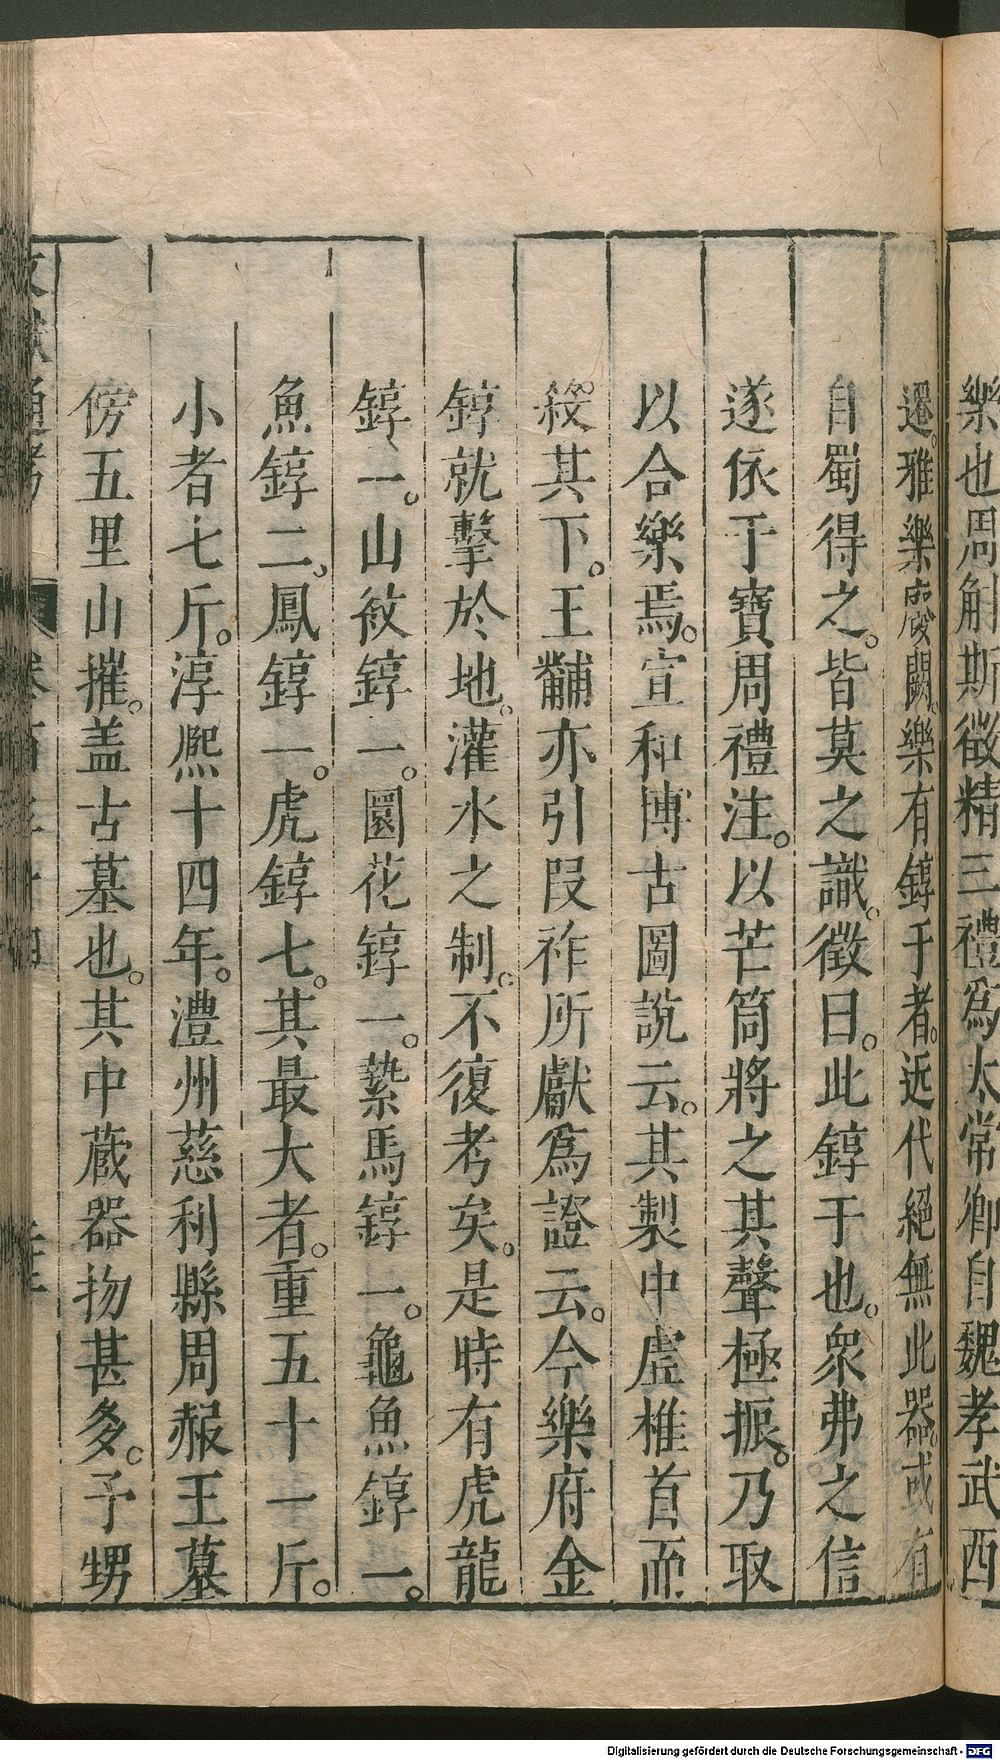 樂也周斛斯徵精三禮爲太常卿自魏孝武西
遷雅樂廢闕樂有錞于者近代絕無此器或有
自蜀得之皆莫之識徵曰此錞于也衆弗之信
遂依于寶周禮注以芒筒將之其聲極振乃取
以合樂焉宣和博古圖說云其製中虛椎首而
殺其下王黼亦引段祚所獻爲證云今樂府金
錞就擊於地灌水之制不復考矣是時有虎龍
錞一山紋錞一圜花錞一縶馬錞一龜魚錞一
魚錞二鳳錞一虎錞七其最大者重五十一斤
小者七斤淳熙十四年澧州慈利縣周赧王墓
傍五里山摧盖古墓也其中蔵器物甚多予甥
Digitalisierung gefördert durch die Deutsche Forschungsgemeinschaft - DFG